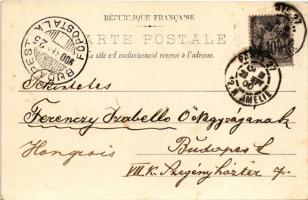 RÉPUBLIQUE FRANÇAISE
CARTE POSTALE
Ce côté est exclusivement réservé à l'adresse.
BUDAPEST
FŐPOSTA
R. AMELIE
Tekintetes
Ferenczy Izabella Ő Nagyságának
Hongrois Budapest
VIII. K. Szegényház tér 7.